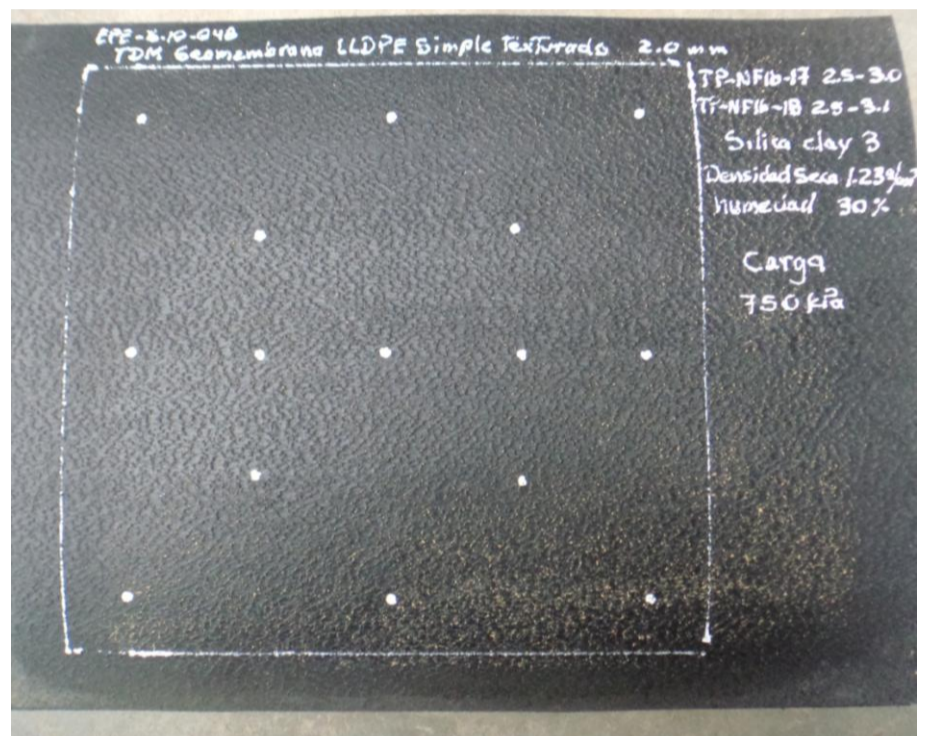 TDM Geomembrana LLDPE Simple Texturado 2.0 mm
TP-NF1b-17 2.5-3.0
TP-NF1b-18 2.5-3.1
Silica clay 3
Densidad Seca 1.23
humedad 30%
Carga
750 kPa